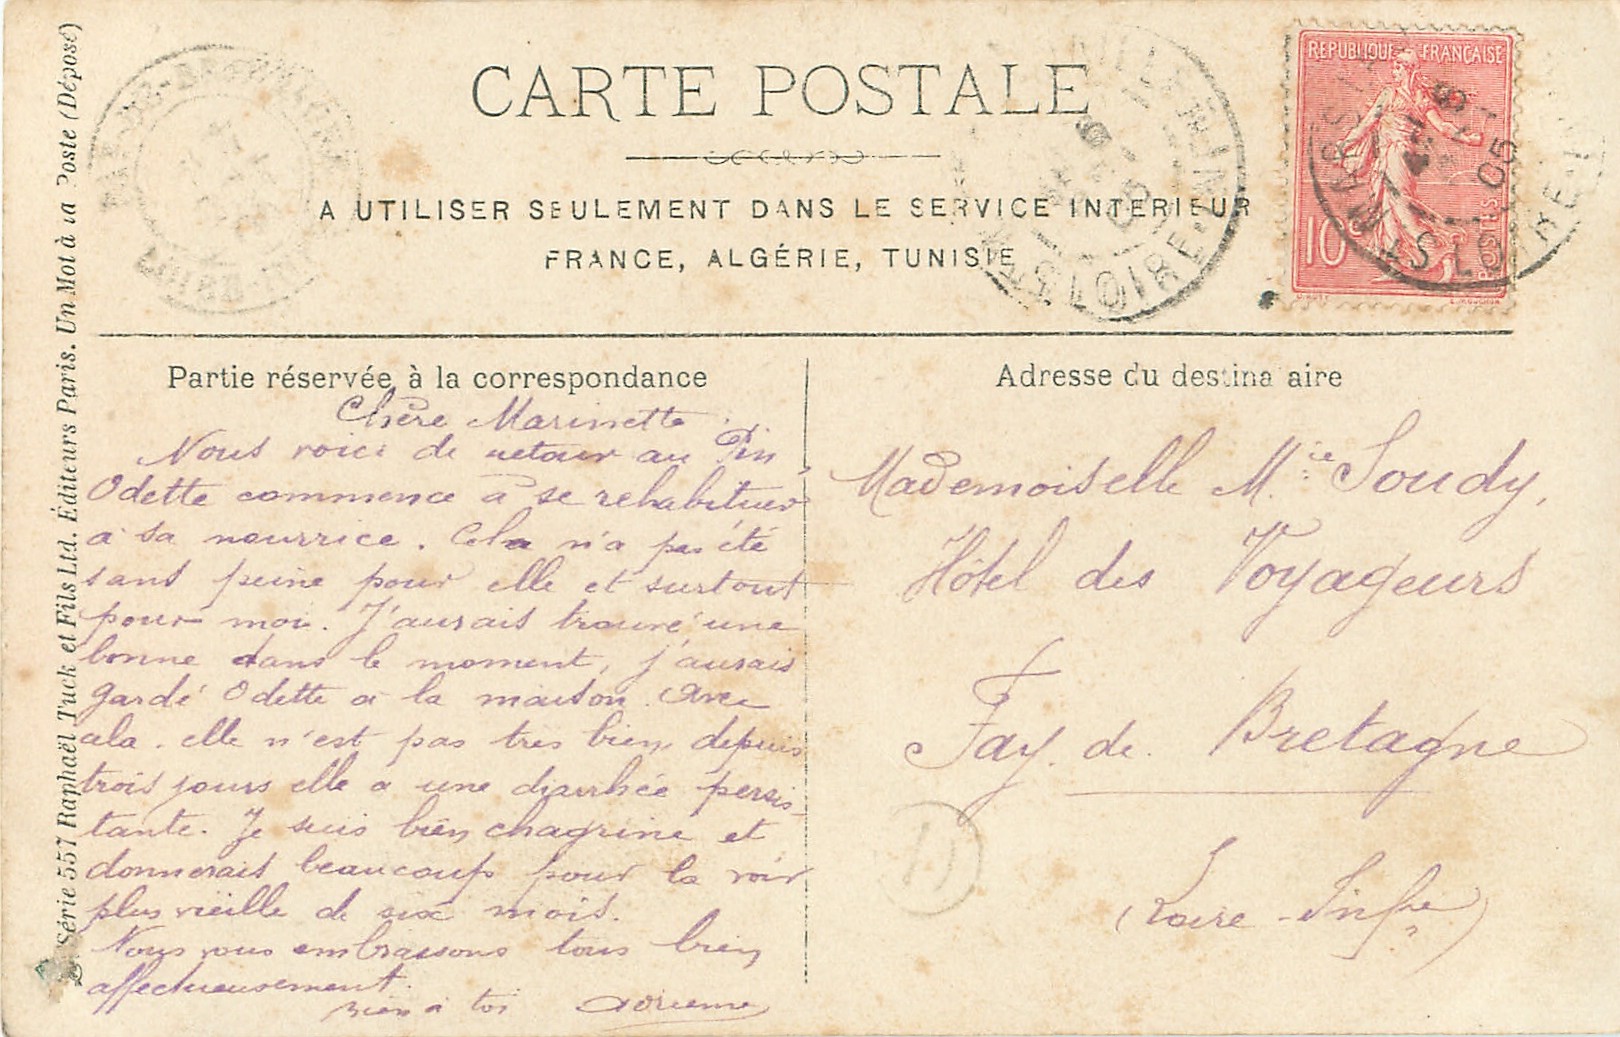 CARTE POSTALE
A UTILISER SEULEMENT DANS LE SERVICE INTERIEUR
FRANCE, ALGÉRIE, TUNISIE
REPUBLIQUE FRANÇAISE
10c
POSTES
05
LOIRE
Série 557 Raphaël Tuck et Fils Ltd. Éditeurs Paris. Un Mot à la Poste (Déposé)
Partie réservée à la correspondance
Chère Marinette
Nous voici de retour au Pin,
Odette commence à se rehabituer
à sa nourrice. Cela n'a pas été
sans peine pour elle et surtout
pour moi. J'aurais trouvé une
bonne dans le moment, j'aurais
gardé Odette à la maison. Avec
cela. elle n'est pas très bien, depuis
trois jours elle a une diarrhée persis-
tante. Je suis bien chagrine et
donnerais beaucoup pour la voir
plus vieille de six mois.
Nous vous embrassons tous bien
affectueusement.
Bien à toi Adrienne
Adresse du destinataire
Mademoiselle M.ie Soudy,
Hôtel des Voyageurs
Fay. de. Bretagne
(Loire-Infre)